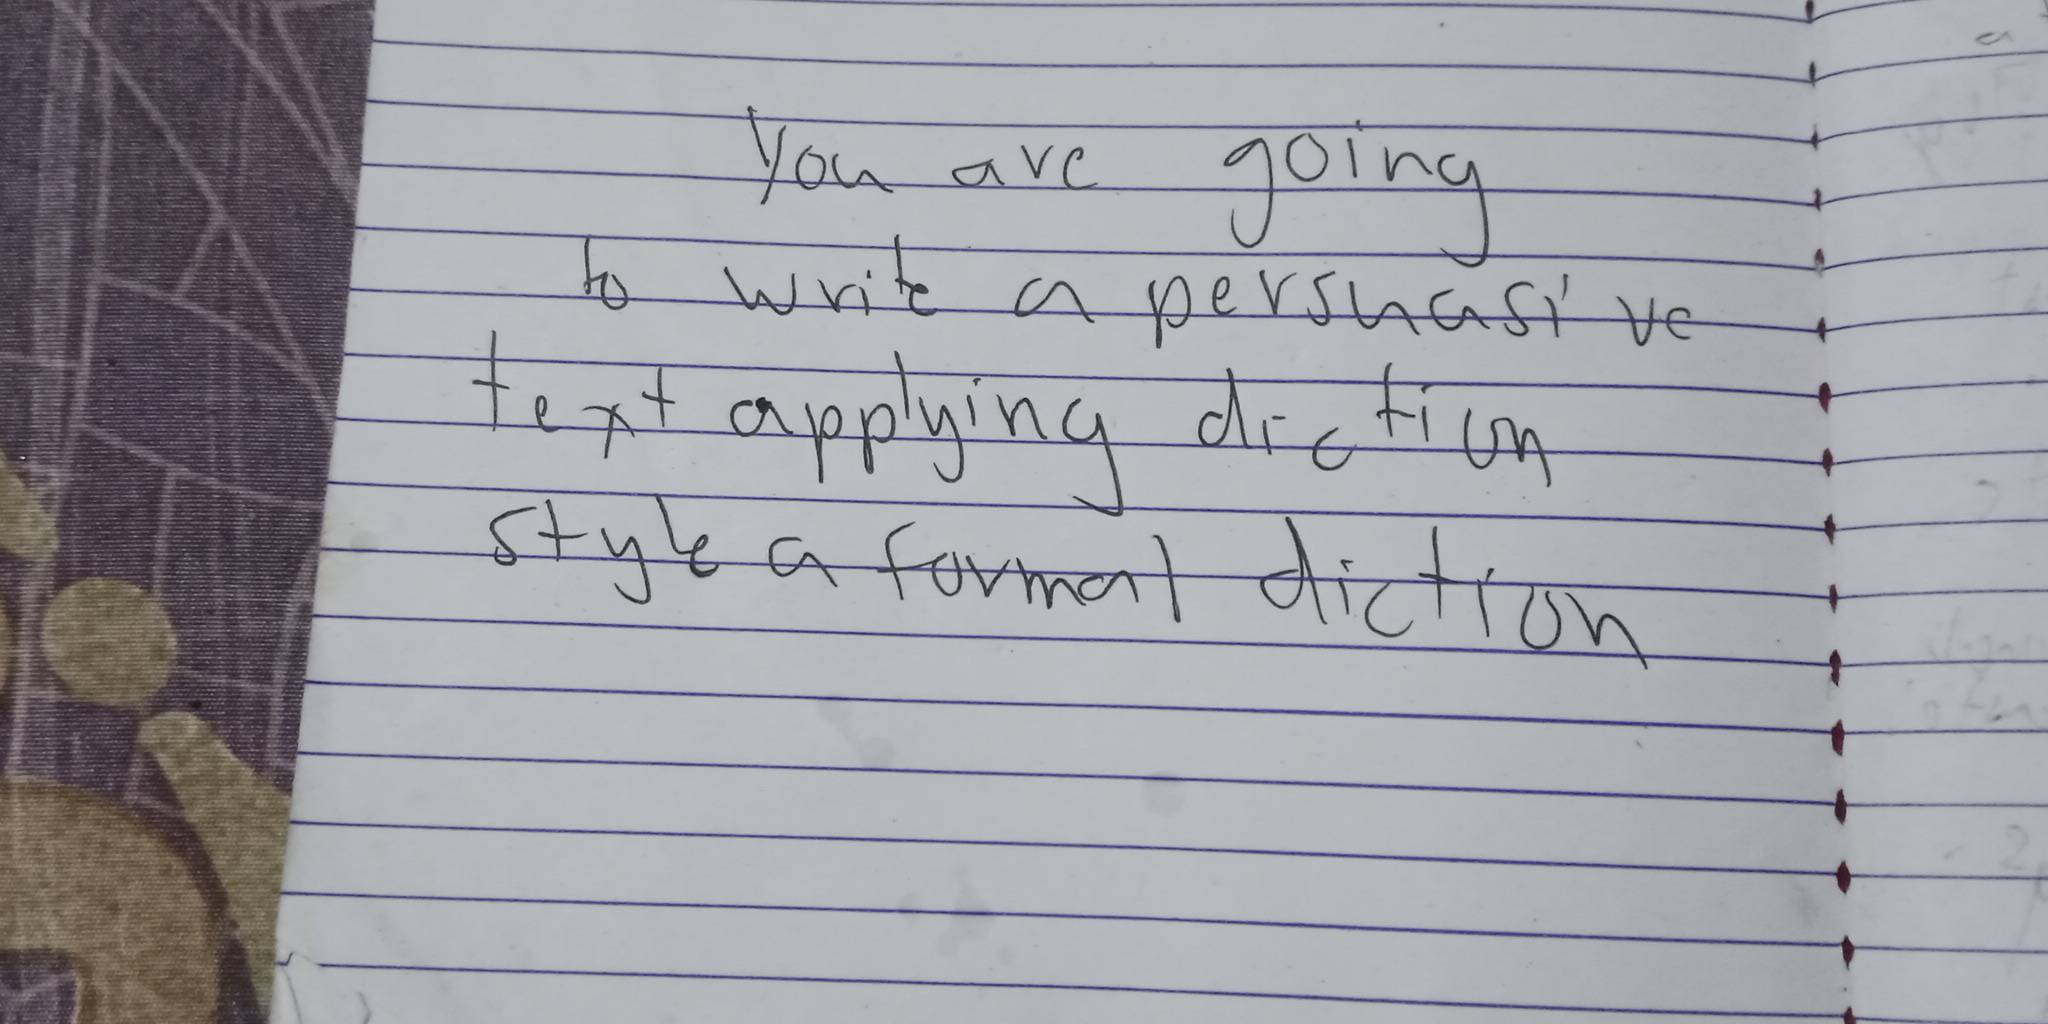 You are going
to write a persuasive
text applying diction
style a formal diction